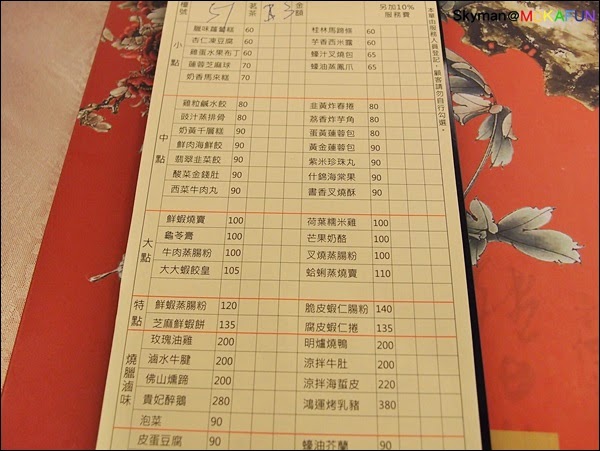 Skyman@MOKAFUN
本單由服務人員登記，顧客請勿自行勾選。
檯號 51 茗茶 金額 另加10%服務費
小點
臘味蘿蔔糕 60 桂林馬蹄條 60
杏仁凍豆腐 60 芋香西米露 60
雞蛋水果布丁 60 蠔汁叉燒包 65
蓮蓉芝麻球 70 蠔油蒸鳳爪 65
奶香馬來糕 70
中點
雞粒鹹水餃 80 韭黃炸春捲 80
豉汁蒸排骨 80 荔香炸芋角 80
奶黃千層糕 90 蛋黃蓮蓉包 90
鮮肉海鮮餃 90 黃金蓮蓉包 90
翡翠韭菜餃 90 紫米珍珠丸 90
酸菜金錢肚 90 什錦海棠果 90
西菜牛肉丸 90 書香叉燒酥 90
大點
鮮蝦燒賣 100 荷葉糯米雞 100
龜苓膏 100 芒果奶酪 100
牛肉蒸腸粉 100 叉燒蒸腸粉 100
大大蝦餃皇 105 蛤蜊蒸燒賣 110
特點
鮮蝦蒸腸粉 120 脆皮蝦仁腸粉 140
芝麻鮮蝦餅 135 腐皮蝦仁捲 135
燒臘滷味
玫瑰油雞 200 明爐燒鴨 200
滷水牛腱 200 涼拌牛肚 200
佛山燻蹄 200 涼拌海蜇皮 220
貴妃醉鵝 280 鴻運烤乳豬 380
泡菜 90
皮蛋豆腐 90 蠔油芥蘭 90